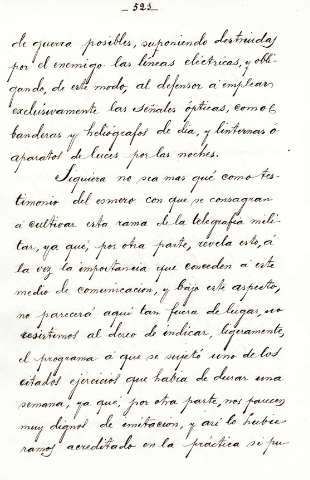 — 523 —
de guerra posibles, suponiendo destruidas
por el enemigo las líneas eléctricas, y obli-
gando, de este modo, al defensor á emplear
exclusivamente las señales ópticas, como
banderas y heliógrafos de día, y linternas ó
aparatos de luces por las noches.
Siquiera no sea mas qué como tes-
timonio del esmero con que se consagran
á cultivar esta rama de la telegrafía mili-
tar, ya que, por otra parte, revela esto, á
la vez la importancia que conceden á este
medio de comunicacion, y bajo este aspecto,
no parecerá aquí tan fuera de lugar, no
resistimos al deseo de indicar, ligeramente,
el programa á que se sujetó uno de los
citados ejercicios que habia de durar una
semana, ya que, por otra parte, nos parecen
muy dignos de imitacion, y así lo hubie-
ramos acreditado en la práctica si pu-